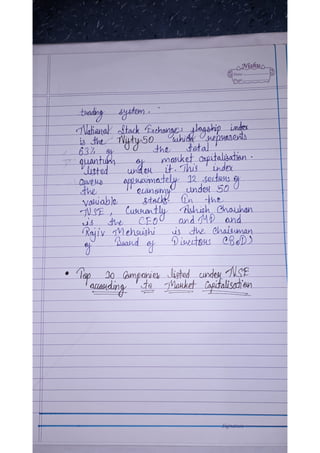 trading system.
National Stock Exchange's flagship index
is the Nifty-50 which represents
63% of the total
quantum of market capitalisation.
listed under it. This index
covers approximately 12 sectors of
the economy under 50
variable stocks. In the
NSE, Currently Ashish Chauhan
is the CEO and MD and
Rajiv Mehrishi is the Chairman
of Board of Directors (BoD)
• Top 20 Companies listed under NSE
according to Market Capitalisation
Signature